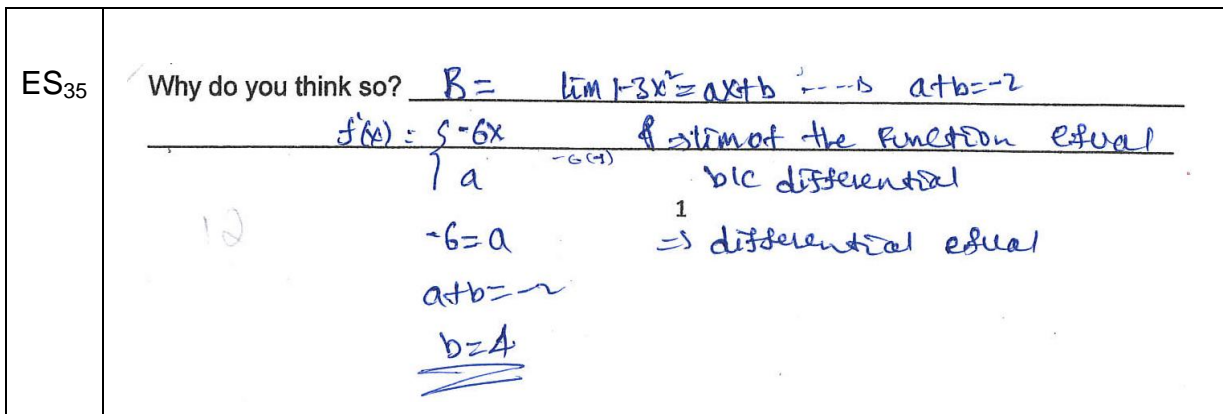 ES35
Why do you think so? B = lim 1-3x²=ax+b ----> a+b=-2
f'(x) = { -6x => lim of the function equal
a -6(1) b/c differential
1
-6=a => differential equal
12
a+b=-2
b=4